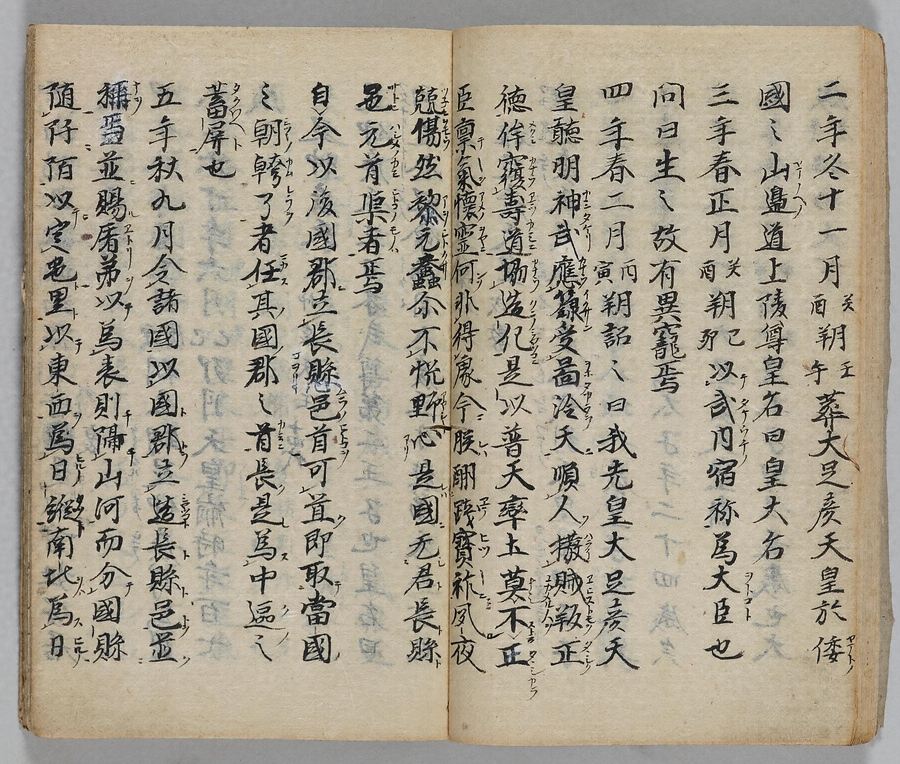 二年冬十一月癸酉朔壬午葬大足彦天皇於倭
國之山邊道上陵尊皇后曰皇太后
三年春正月癸酉朔己卯以武内宿祢為大臣也
問曰生之故有異寵焉
四年春二月丙寅朔詔之曰我先皇大足彦天
皇聽明神武應籙受啚洽天順人撥賊叛正
徳侔覆壽道協造化是以普天率土莫不
臣稟氣懷靈何非得像今朕嗣踐寶祚夙夜
兢惕然黎元蠢尒不悛野心是國无君長縣
邑无首渠者焉
自今以後國郡立長縣邑首可置即取當國
之幹了者任其國郡之首長是為中區之
蕃屏也
五年秋九月令諸國以國郡立造長縣邑並
稱焉並賜盾矛以為表則隔山河而分國縣
随阡陌以定邑里以東西為日縱南北為日